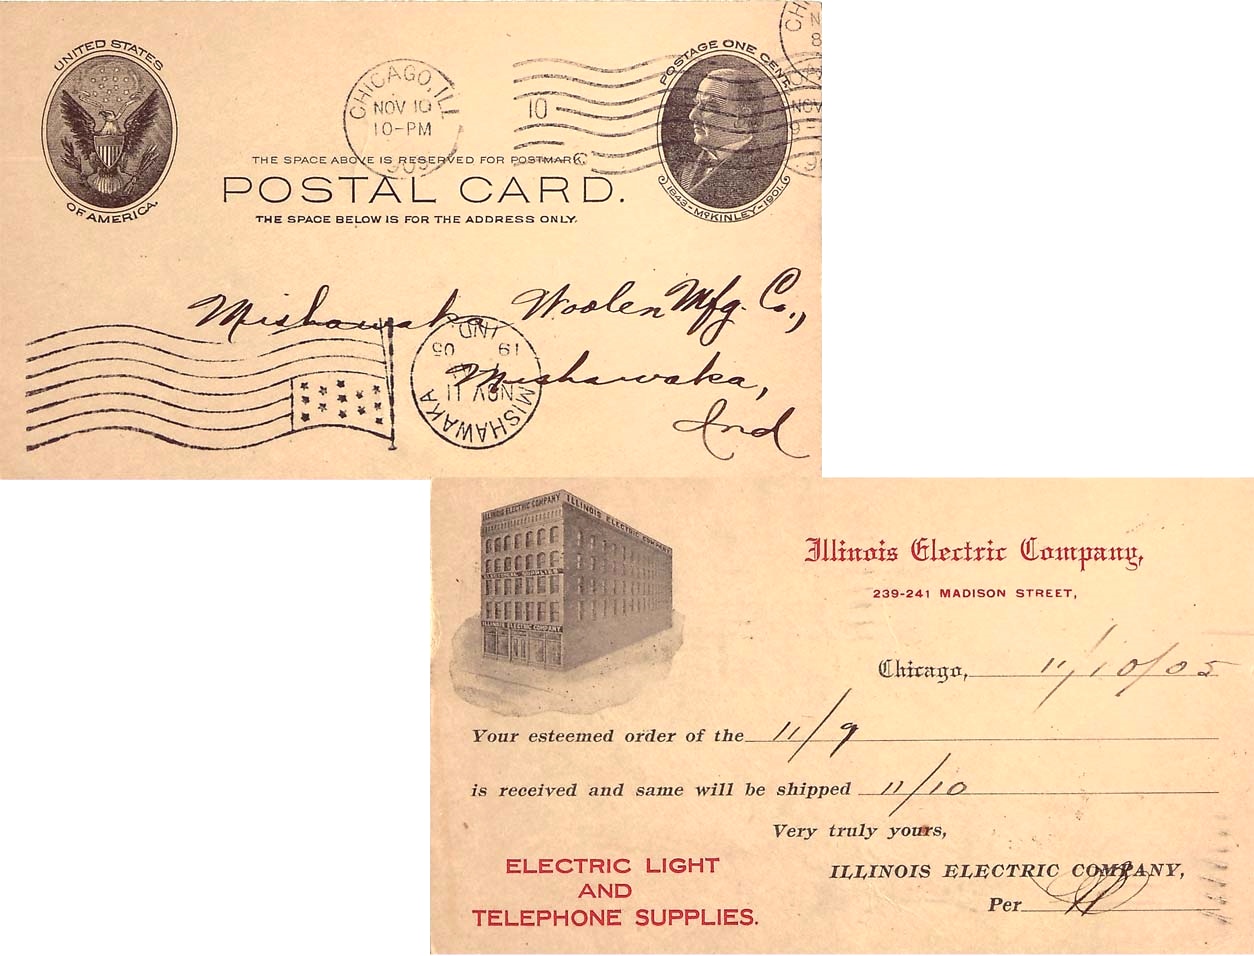 UNITED STATES
OF AMERICA.
CHICAGO, ILL
NOV 10
10-PM
1905
10
POSTAGE ONE CENT.
1843-McKINLEY-1901.
CHI
N
8
NOV
9
THE SPACE ABOVE IS RESERVED FOR POSTMARK.
POSTAL CARD.
THE SPACE BELOW IS FOR THE ADDRESS ONLY.
Mishawaka Woolen Mfg. Co.,
Mishawaka,
Ind
MISHAWAKA
NOV 11
19 05
IND.
ILLINOIS ELECTRIC COMPANY
ILLINOIS ELECTRIC COMPANY
ELECTRICAL SUPPLIES
ILLINOIS ELECTRIC COMPANY
Illinois Electric Company,
239-241 MADISON STREET,
Chicago, 11/10/05
Your esteemed order of the 11/9
is received and same will be shipped 11/10
Very truly yours,
ILLINOIS ELECTRIC COMPANY,
Per
ELECTRIC LIGHT
AND
TELEPHONE SUPPLIES.